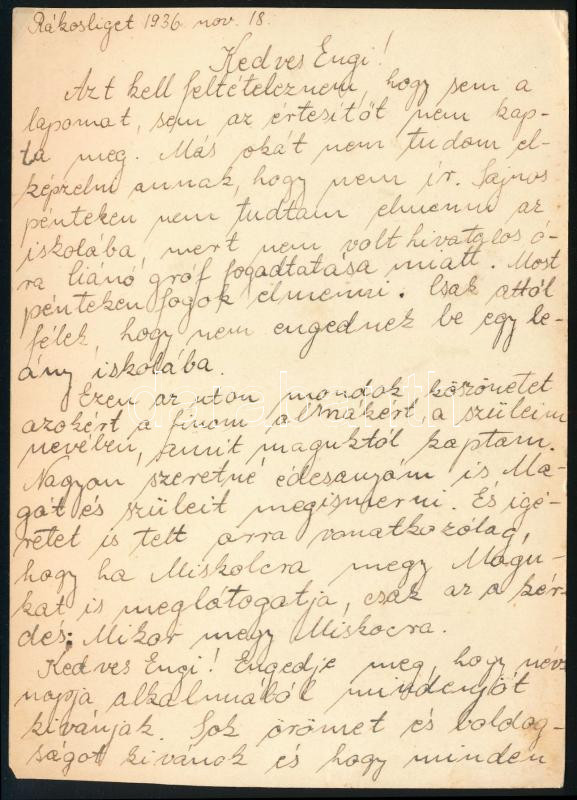 Rákosliget 1936 nov. 18.
Kedves Engi!
Azt kell feltételeznem, hogy sem a
lapomat, sem az értesitőt nem kap-
ta meg. Más okát nem tudom el-
képzelni annak, hogy nem ír. Sajnos
pénteken nem tudtam elmenni az
iskolába, mert nem volt hivatalos ó-
ra Ciánó gróf fogadtatása miatt. Most
pénteken fogok elmenni. Csak attól
félek, hogy nem engednek be egy le-
ány iskolába.
Ezen az uton mondok köszönetet
azokért a finom almákért, a szüleim
nevében, amit maguktól kaptam.
Nagyon szeretné édesanyám is Ma-
gát és szüleit megismerni. És igé-
retet is tett arra vonatkozólag,
hogy ha Miskolcra megy Magu-
kat is meglátogatja, csak az a kér-
dés: Mikor megy Miskocra.
Kedves Engi! Engedje meg, hogy név-
napja alkalmából mindenjót
kivánjak. Sok örömet és boldog-
ságot kivánok és hogy minden
darabanth